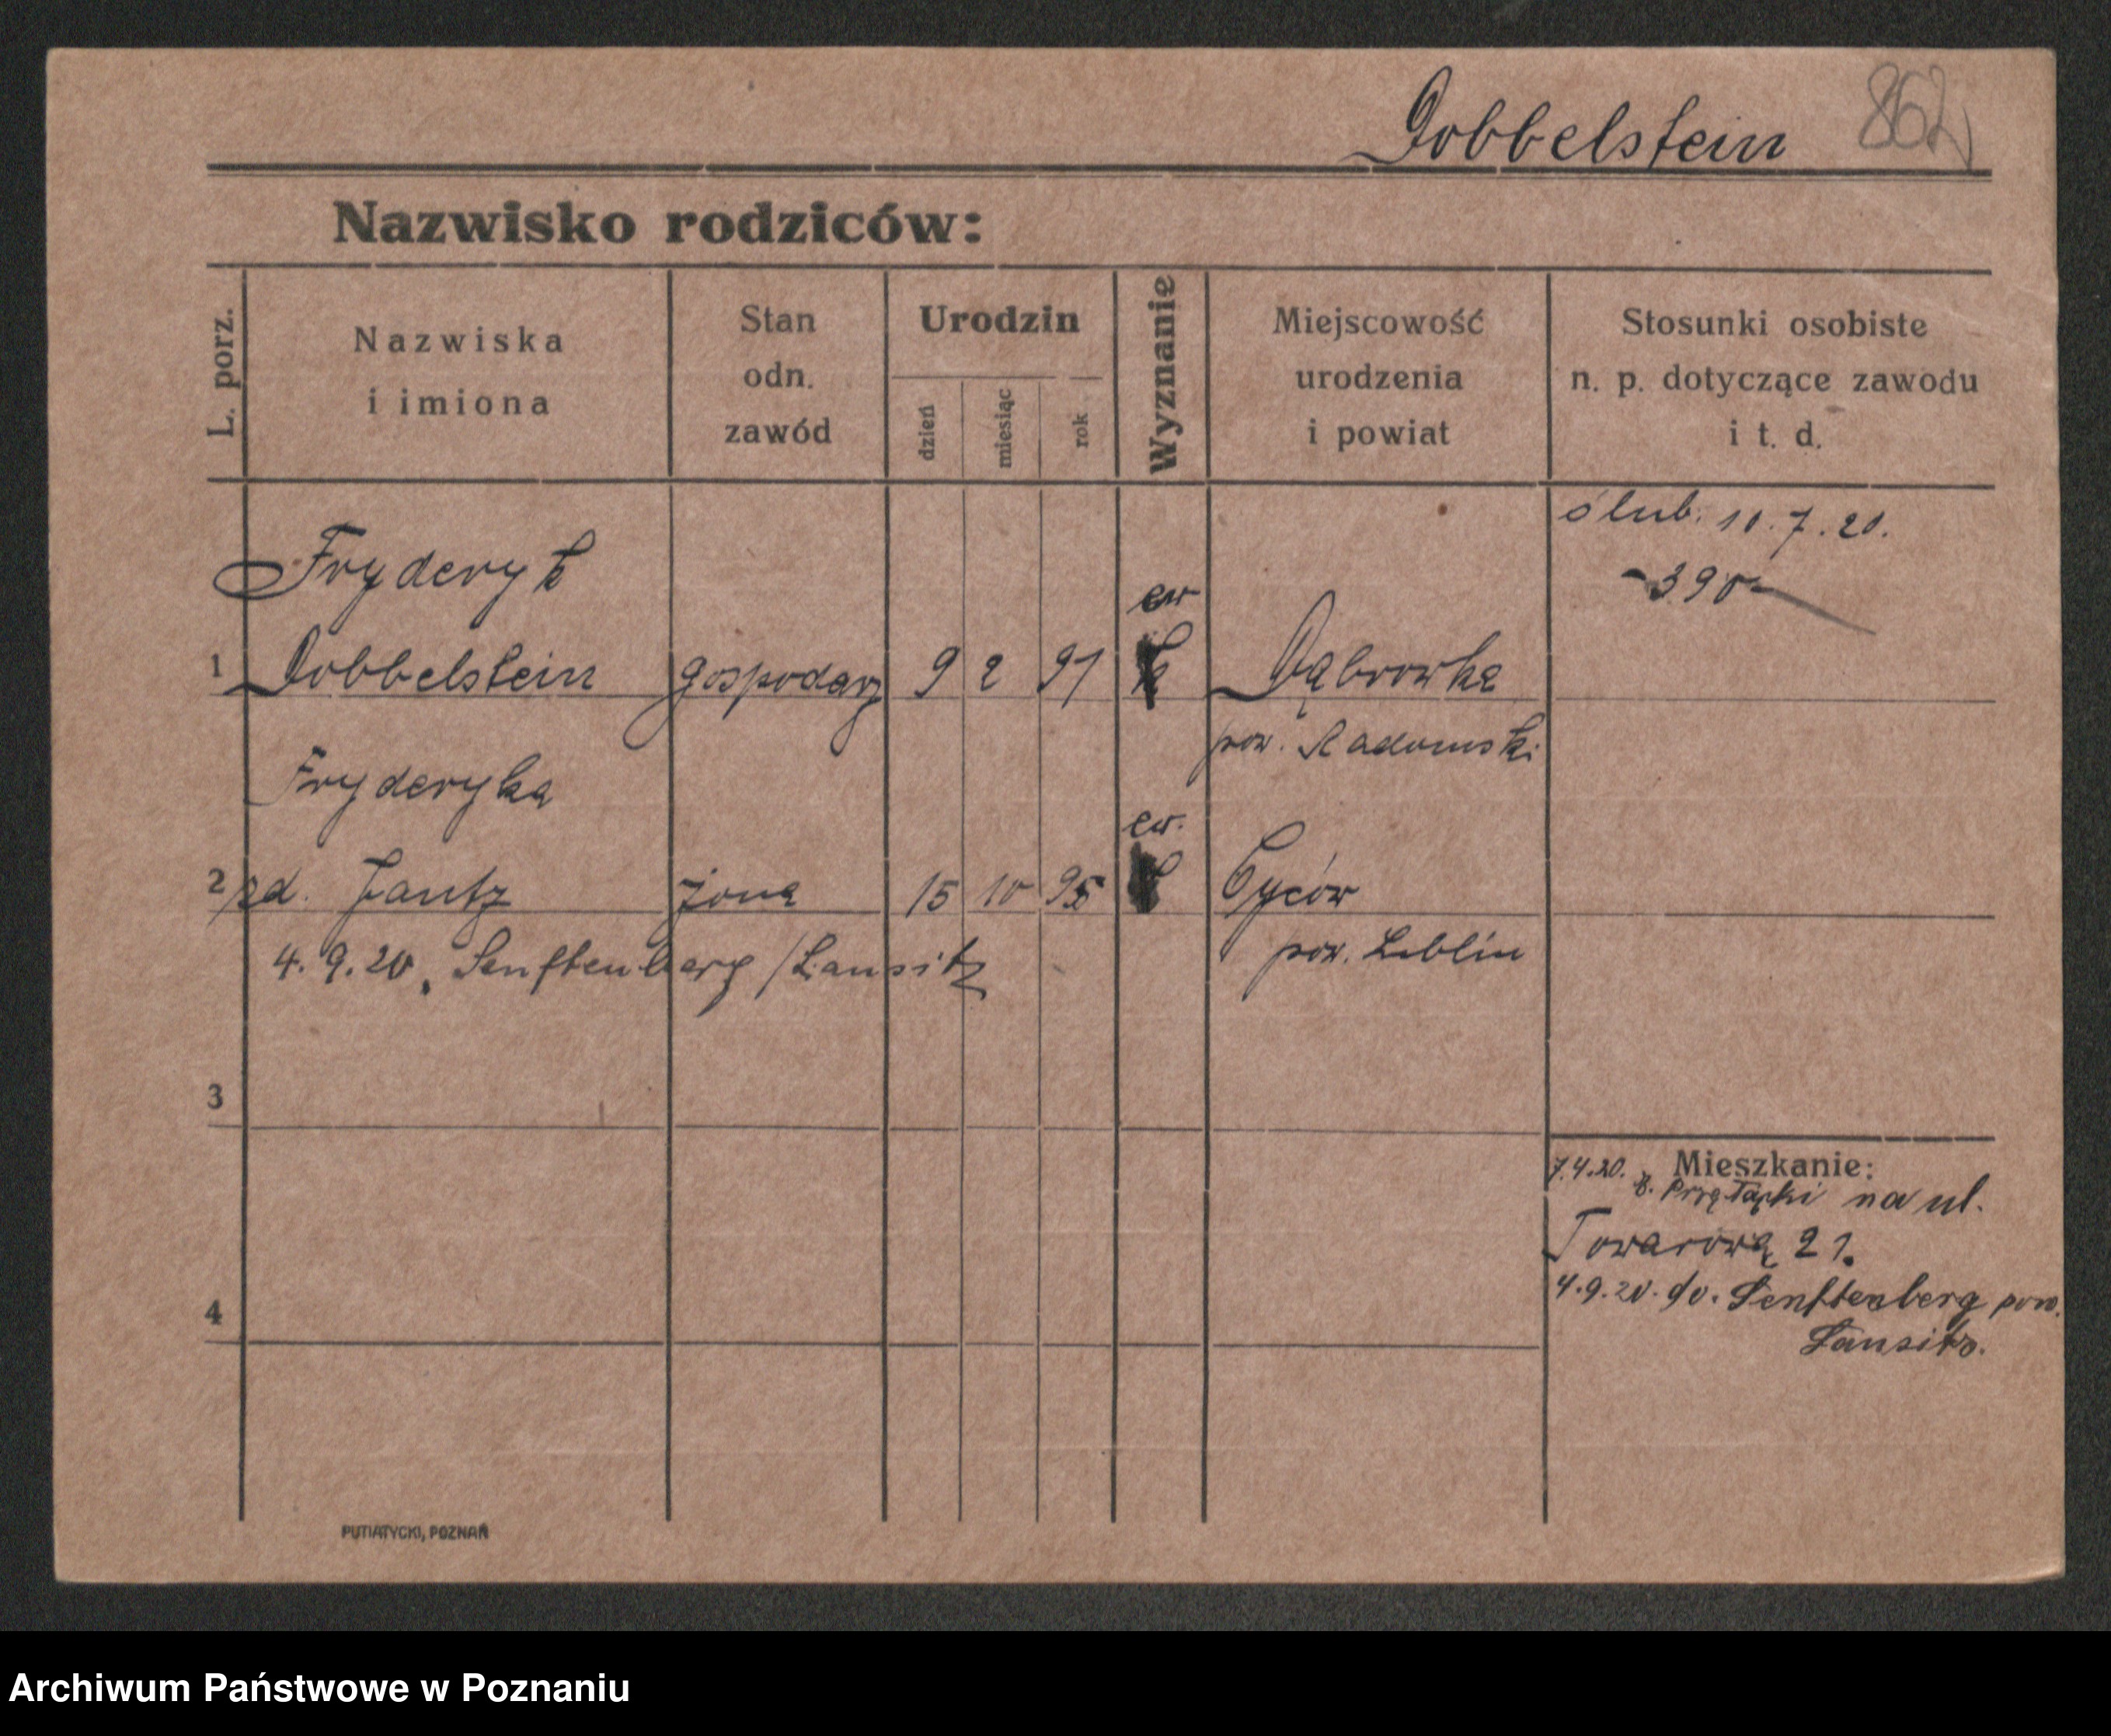 Dobbelstein 862
Nazwisko rodziców:
L. porz.
Nazwiska
i imiona
Stan
odn.
zawód
Urodzin
dzień
miesiąc
rok
Wyznanie
Miejscowość
urodzenia
i powiat
Stosunki osobiste
n. p. dotyczące zawodu
i t. d.
ślub. 10.7.20.
Fryderyk
ew
1 Dobbelstein gospodarz 9 2 91 k Dąbrowka
pow. Radomski
Fryderyka
ew.
2 zd. Jantz żona 15 10 95 Cyców
4.9.20, Senftenberg /Lausitz pow. Lublin
3
Mieszkanie:
7.4.20. na ul.
Towarową 21.
4
4.9.20. do. Senftenberg pow.
Lausitz.
PUTIATYCKI, POZNAŃ
Archiwum Państwowe w Poznaniu